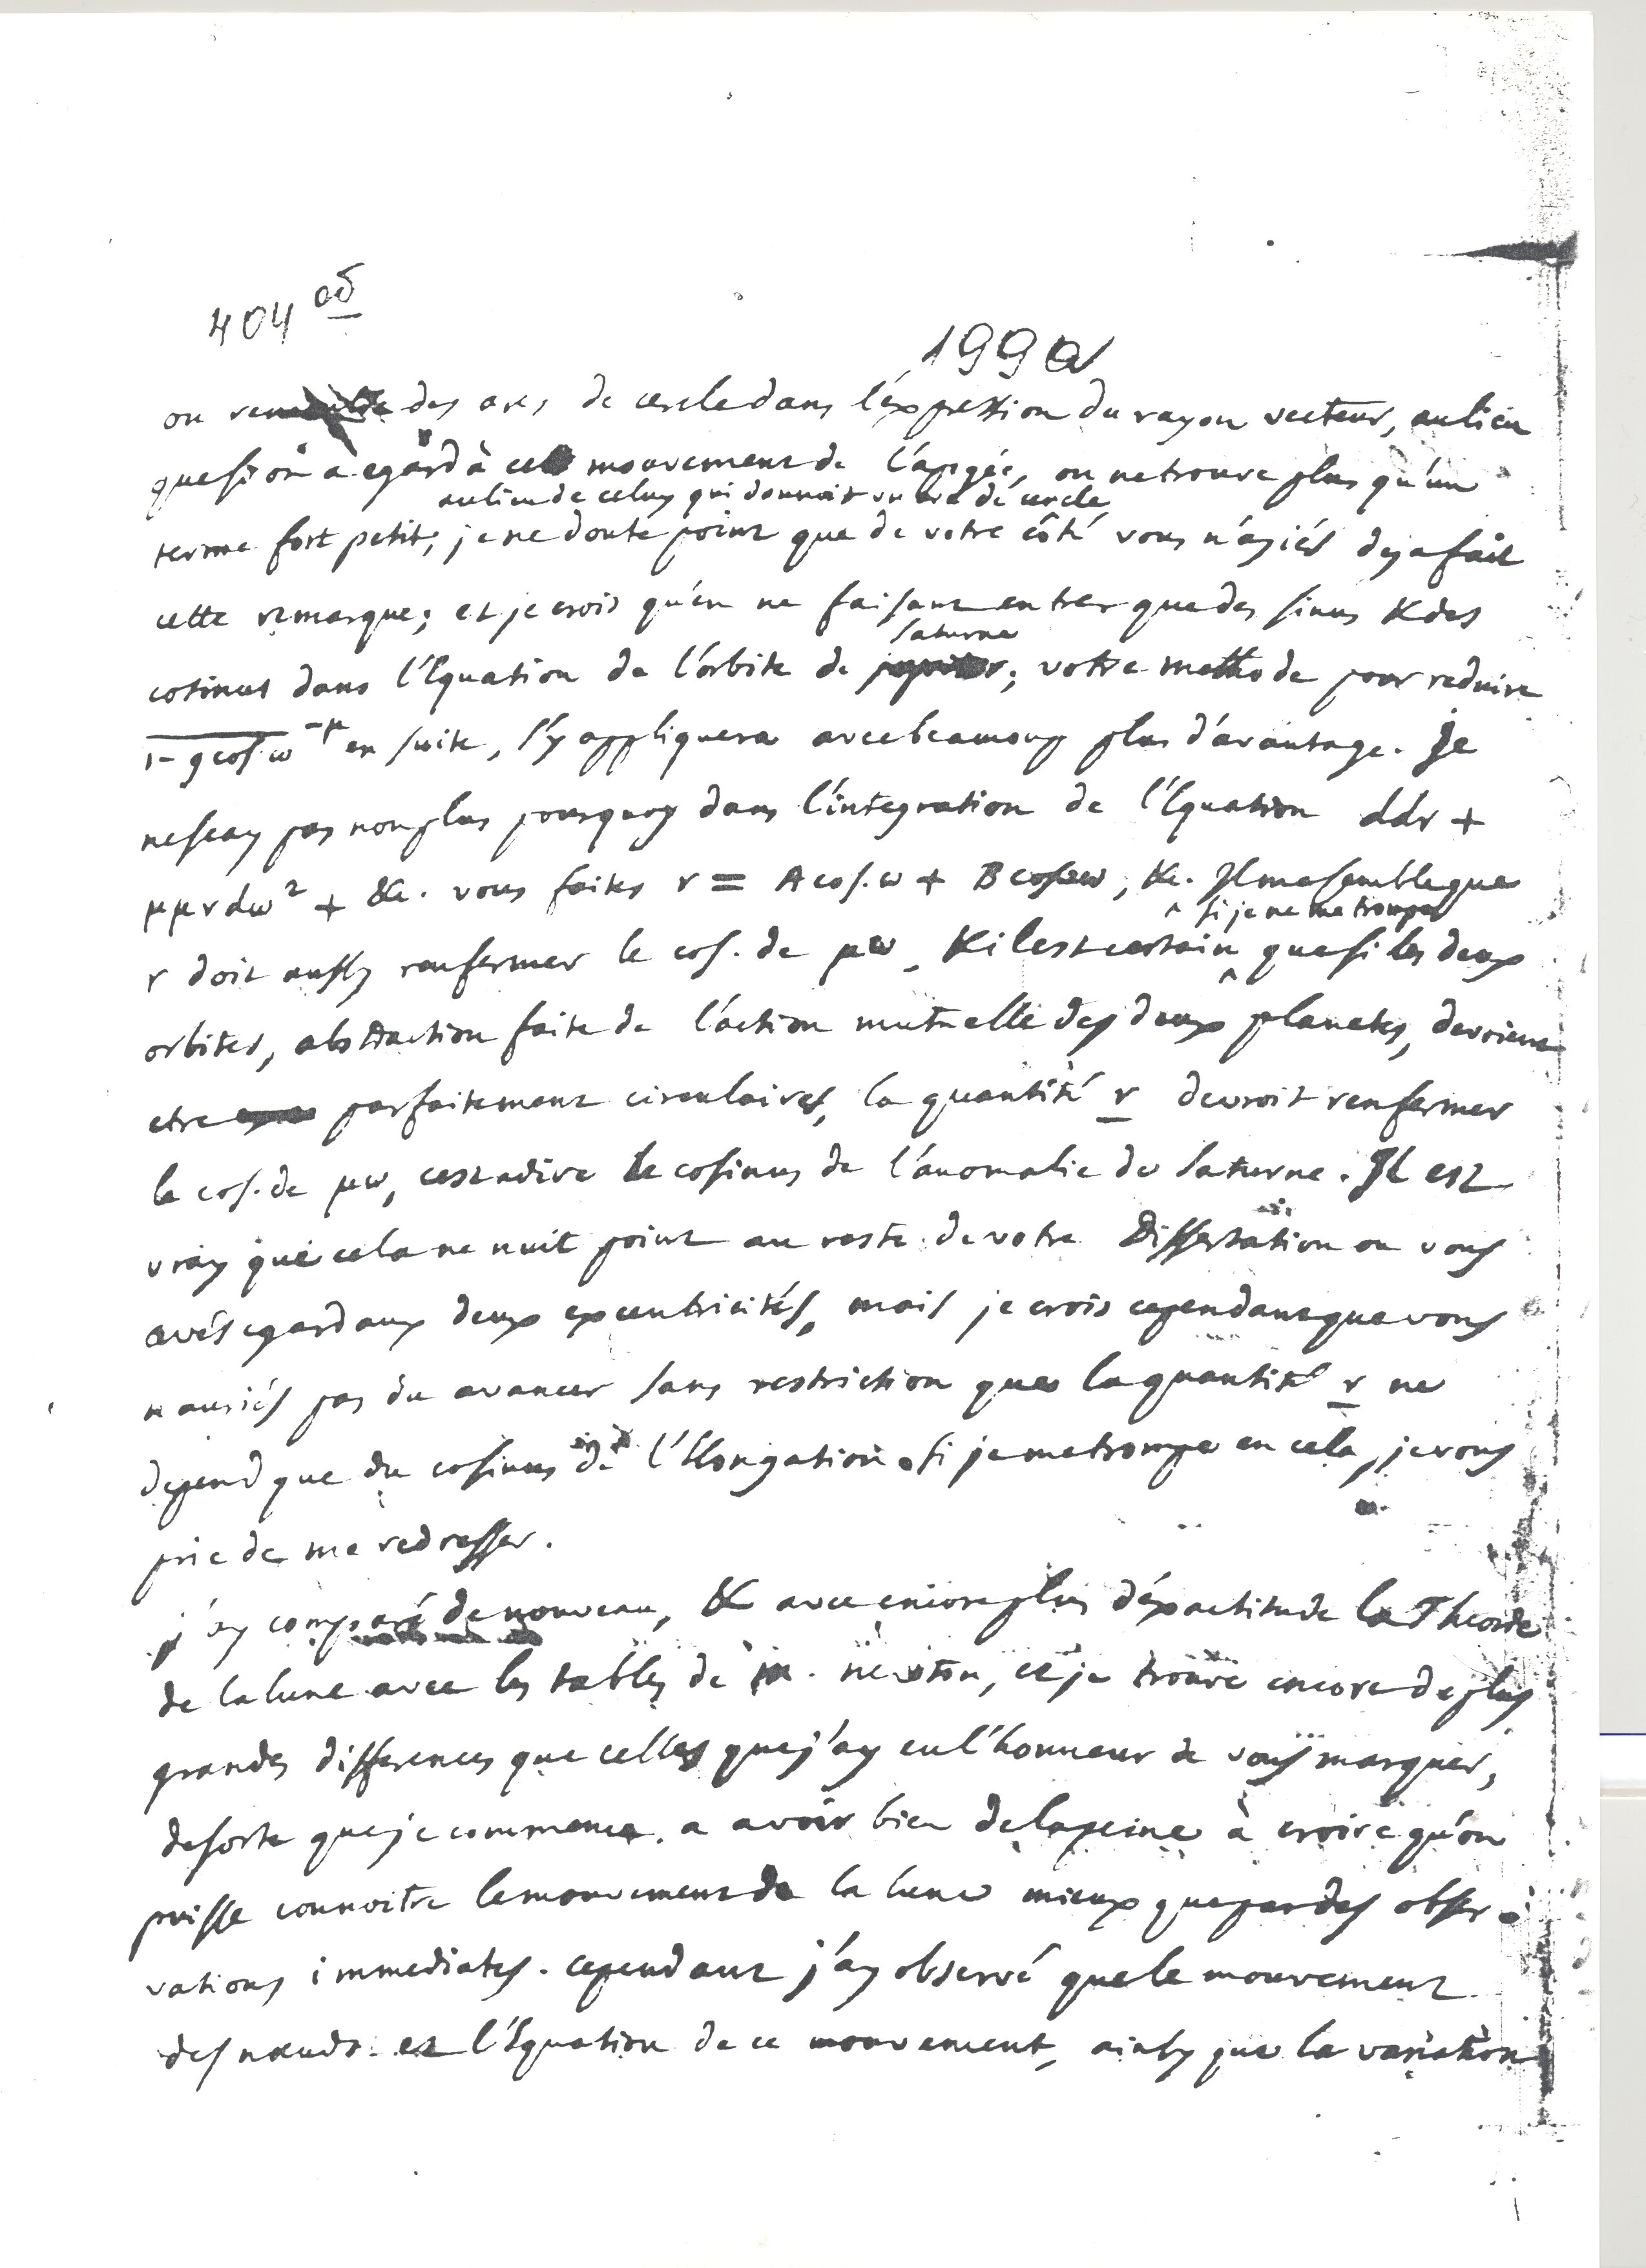 404 об
199a
on des arcs de cercle dans l'éxpression du rayon vecteur, aulieu
que si on a egard à ce mouvement de l'apogée, on ne trouve plus qu'un
aulieu de celuy qui donnoit un arc de cercle
terme fort petit; je ne doute point que de votre côté vous n'ayiés deja fait
cette remarque; et je crois qu'en ne faisant entrer que des sinus & des
saturne
cosinus dans l'Equation de l'órbite de jupiter; votre methode pour reduire
1-gcos.ω^-μ en suite, s'y appliquera avec beaucoup plus d'avantage. Je
ne scay pas non plus pourquoy dans l'íntegration de l'Equation ddr +
μμrdω² + &c. vous faites r = A cos.ω + B cos2ω, &c. Il me semble que
si je ne me trompe
r doit aussy renfermer le cos. de μω, & il est certain que si les deux
orbites, abstraction faite de l'action mutuelle des deux planetes, devoient
etre parfaitement circulaires, la quantité r devroit renfermer
le cos. de μω, cest adire le cosinus de l'anomalie de Saturne. Il est
vray que cela ne nuit point au reste de votre Dissertation ou vous
avés egard aux deux excentricités, mais je crois cependant que vous
n auriés pas du avancer sans restriction que la quantité r ne
depend que du cosinus de l'Elongation. si je me trompe en cela, je vous
prie de me redresser.
j'ay comparé de nouveau, & avec encore plus d'éxactitude la Theorie
de la lune avec les tables de m. newton, et je trouve encore de plus
grandes differences que celles que j'ay eu l'honneur de vous marquer,
desorte que je commence a avoir bien de la peine à croire qu'on
puisse connoitre le mouvement de la lune mieux que par des obser-
vations immediates. cependant j'ay observé que le mouvement
des nœuds et l'Equation de ce mouvement, ainsy que la variation